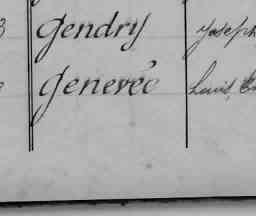 3 Gendry Joseph
Generéc Louis